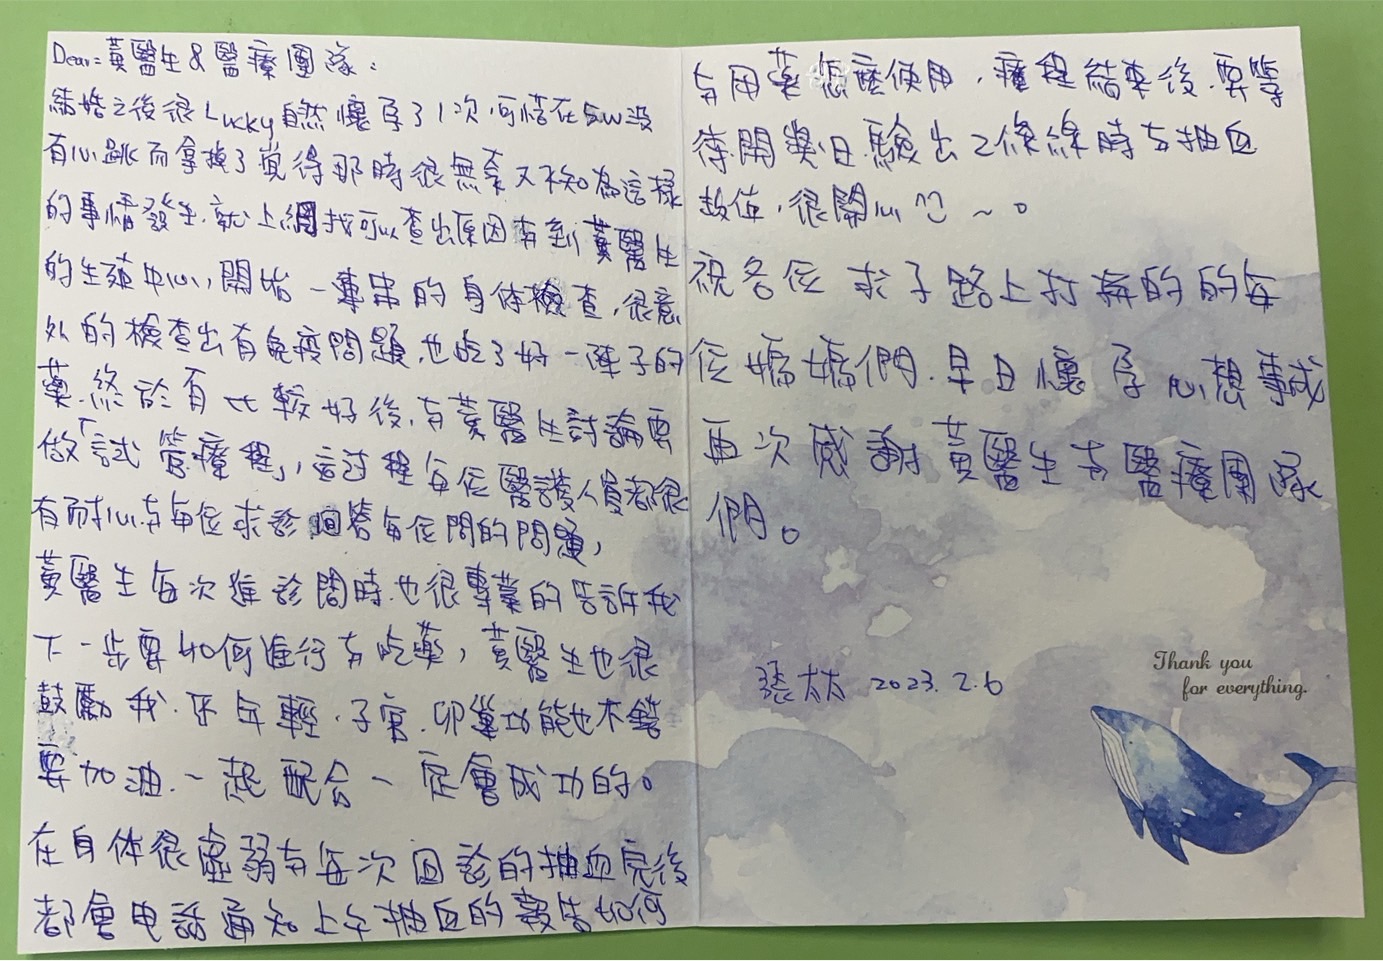 Dear=黃醫生&醫療團隊：
結婚之後很Lucky自然懷孕了1次,可惜在5w沒
有心跳而拿掉了覺得那時很無奈又不知為這樣
的事情發生.就上網找可以查出原因有到黃醫生
的生殖中心,開始一連串的身体檢查,很意
外的檢查出有免疫問題,也吃了好一陣子的
藥.終於有比較好後,与黃醫生討論要
做「試管療程」,這过程每位醫護人員都很
有耐心与每位求診回答每位問的問題,
黃醫生每次進診間時也很專業的告訴我
下一步要如何進行与吃藥,黃醫生也很
鼓勵我.年輕.子宮.卵巢功能也不錯
要加油.一起配合一定會成功的。
在身体很虛弱与每次回診的抽血完後
都會电話通知上午抽血的報告如何
与用藥怎麼使用.療程結束後.要等
待開獎日.驗出2條線時与抽血
数值,很開心^^~。
祝各位求子路上打拚的的每
位媽媽們.早日懷孕心想事成
再次感謝黃醫生与醫療團隊
們。
張太太 2023.2.6
Thank you
for everything.